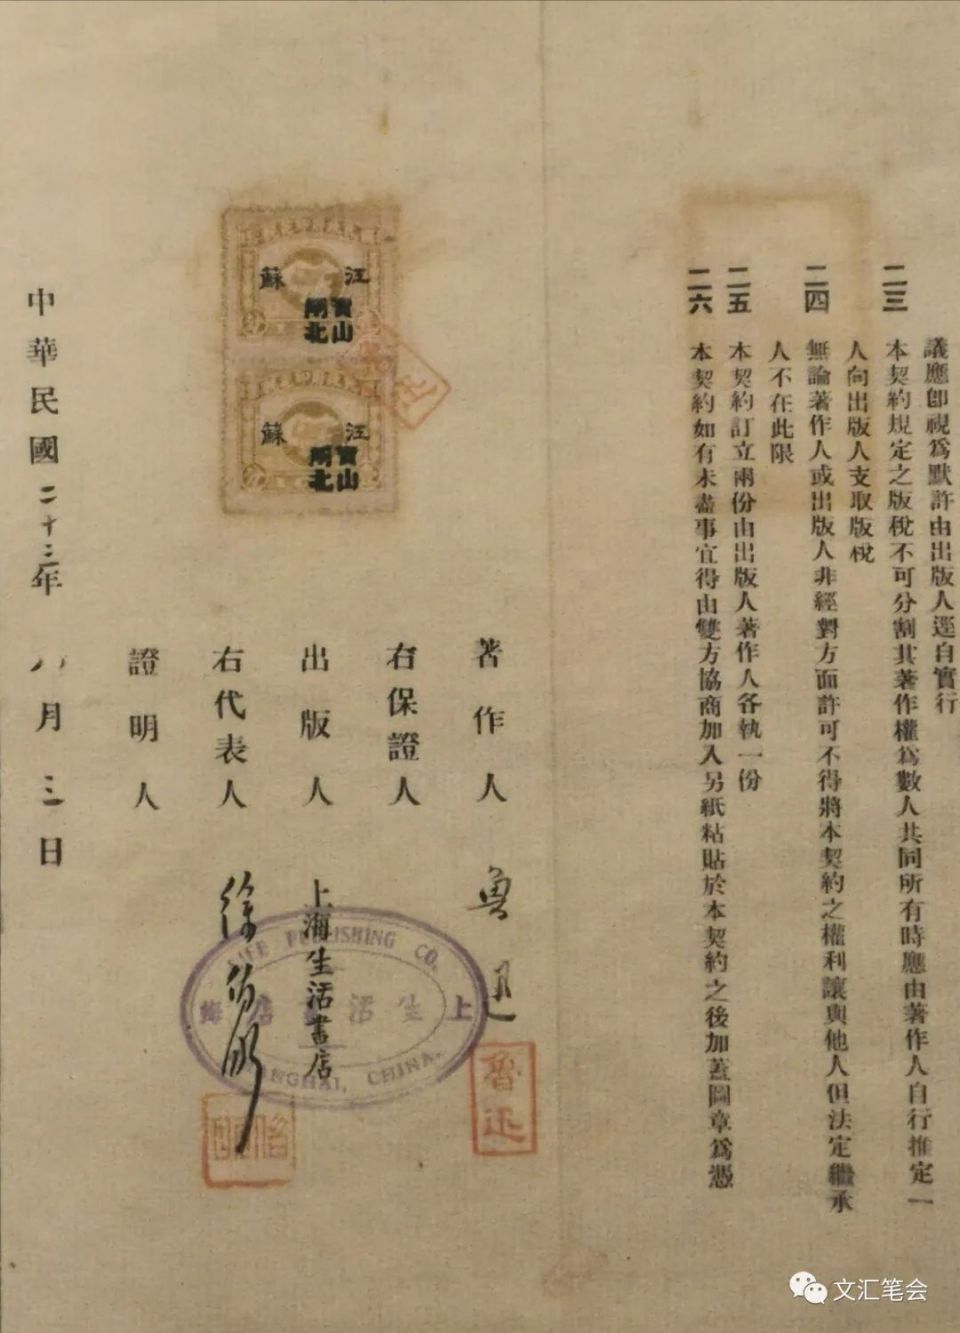 議應卽視爲默許由出版人逕自實行
二三
本契約規定之版稅不可分割其著作權爲數人共同所有時應由著作人自行推定一
人向出版人支取版稅
二四
無論著作人或出版人非經對方面許可不得將本契約之權利讓與他人但法定繼承
人不在此限
二五
本契約訂立兩份由出版人著作人各執一份
二六
本契約如有未盡事宜得由雙方協商加入另紙粘貼於本契約之後加蓋圖章爲憑
著作人 魯迅
魯迅
右保證人
出版人 上海生活書店
LIFE PUBLISHING CO.
上海生活書店
SHANGHAI, CHINA.
右代表人 徐伯昕
證明人
江蘇
寶山
閘北
江蘇
寶山
閘北
中華民國二十三年八月三日
文汇笔会